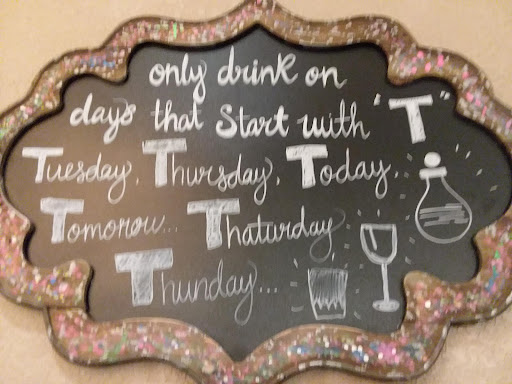 only drink on
days that start with "T"
Tuesday, Thursday, Today.
Tomorow... Thaturday
Thunday...